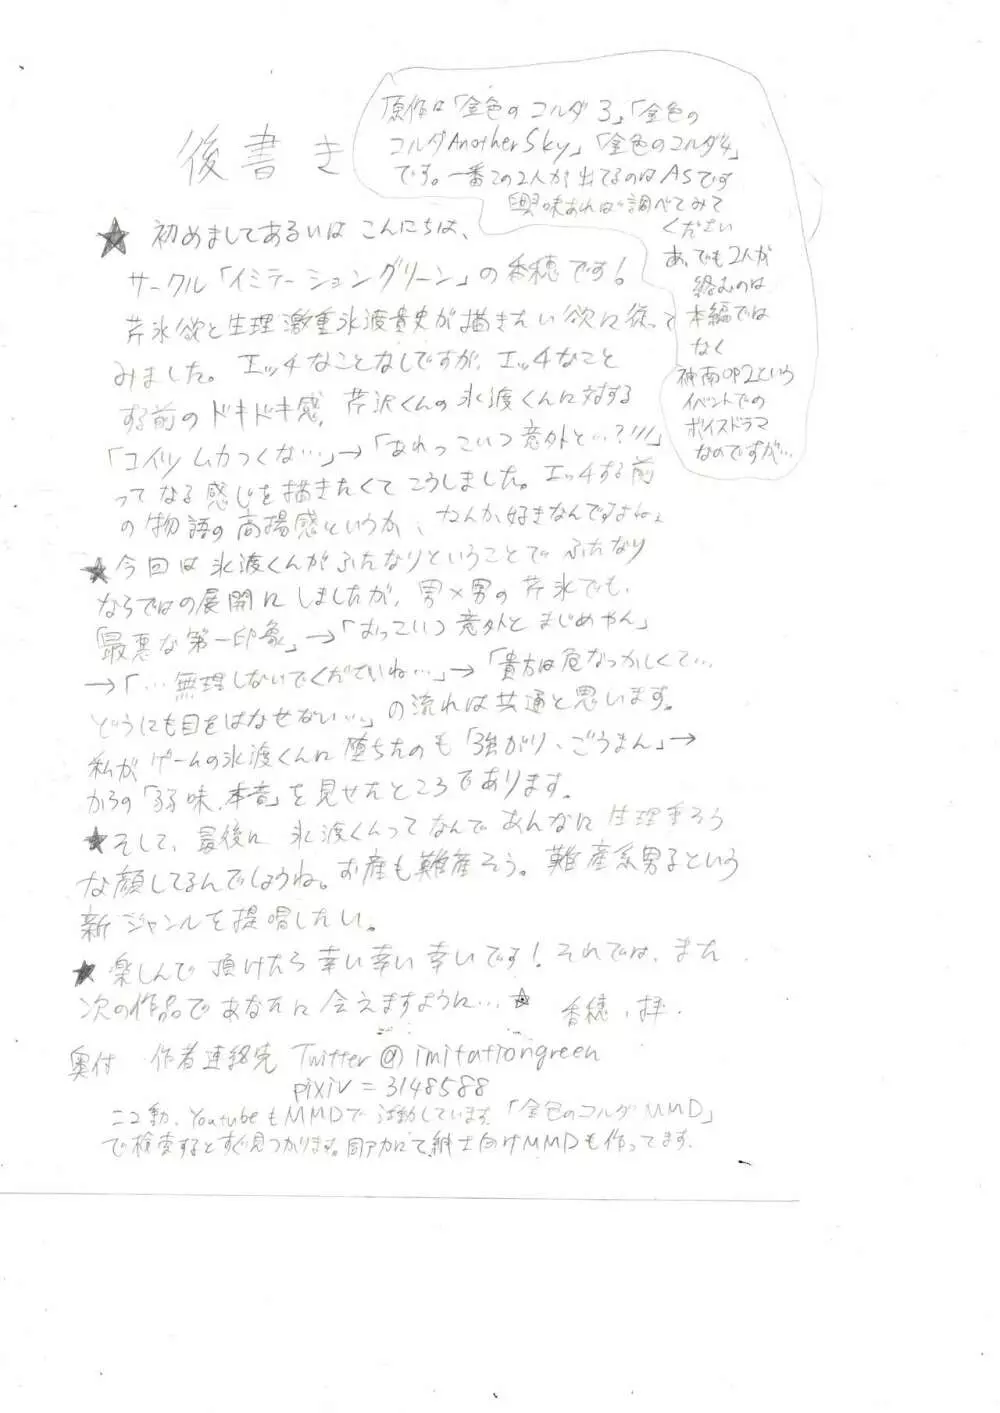 後書き
原作は「金色のコルダ3」「金色の
コルダAnotherSky」「金色のコルダ4」
です。一番この2人が出てるのはASです
興味あれば調べてみて
ください
あ、でも2人が
絡むのは
本編では
なく
神南OP2という
イベントでの
ボイスドラマ
なのですが…
★ 初めましてあるいは こんにちは、
サークル「イミテーショングリーン」の香穂です!
芹氷欲と生理激重氷渡貴史が描きたい欲に従って
みました。エッチなことなしですが、エッチなこと
する前のドキドキ感、芹沢くんの氷渡くんに対する
「コイツムカつくな…」→「あれっこいつ意外と…?!!!」
ってなる感じを描きたくてこうしました。エッチする前
の物語の高揚感というか、なんか好きなんですよね。
★今回は氷渡くんがふたなりということで ふたなり
ならではの展開にしましたが、男×男の芹氷でも、
「最悪な第一印象」→「おっこいつ意外とまじめやん」
→「…無理しないでくださいね…」→「貴方は危なっかしくて…
どうにも目をはなせない…」の流れは共通と思います。
私がゲームの氷渡くんに堕ちたのも「強がり、ごうまん」→
からの「弱味、本音」を見せたところであります。
★そして、最後に 氷渡くんってなんであんなに生理重そう
な顔してるんでしょうね。お産も難産そう。難産系男子という
新ジャンルを提唱したい。
★ 楽しんで頂けたら幸い幸い幸いです! それでは、また
次の作品であなたに会えますように…☆ 香穂、拝.
奥付 作者連絡先 Twitter@imitationgreen
pixiv=3148588
ニコ動、YoutubeもMMDで活動しています。「金色のコルダMMD」
で検索するとすぐ見つかります。同アカにて紳士向けMMDも作ってます.